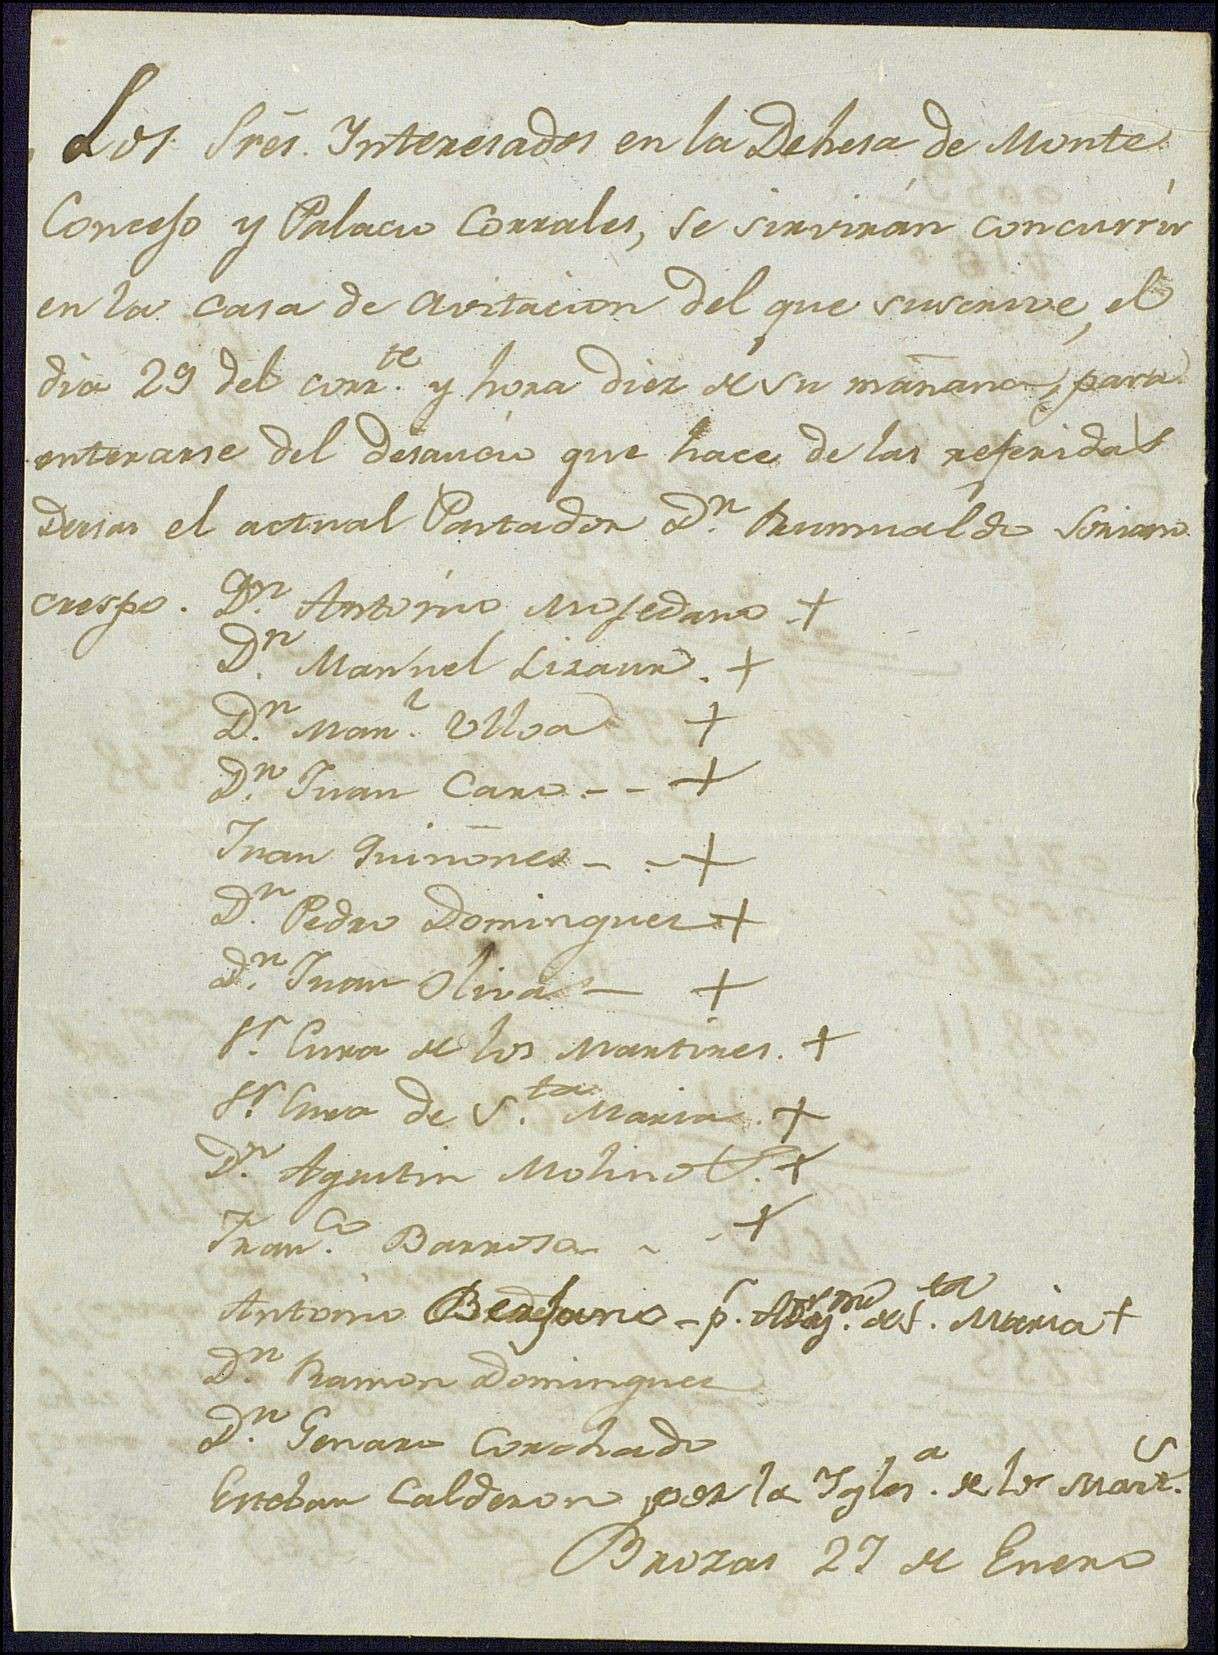 Los Sres. Interesados en la Dehesa de Monte
Concejo y Palacio Corrales, se sirvirán concurrir
en la casa de avitacion del que suscrive, el
dia 29 del corr.te y hora diez de su mañana, para
enterarse del desaucio que hace de las referidas
Desas el actual Pastador Dn. Rumualdo Soriano
crespo. Dn. Antonio Mosedano +
Dn. Manuel Lizaur. +
Dn. Man.l Ulloa +
Dn. Juan Caro - - +
Juan Quiñones - - +
Dn. Pedro Dominguez +
Dn. Juan Oliva - +
Sr. Cura de los Martires. +
Sr. Cura de S.ta Maria. +
Dn. Agustin Molino. +
Fran.co Barroso - - - +
Antonio - p.r de S.ta Maria +
Dn. Ramon Dominguez
Dn. Genaro Corchado
Esteban Calderon por la Ygles.a de los Mart.s
Brozas 27 de Enero